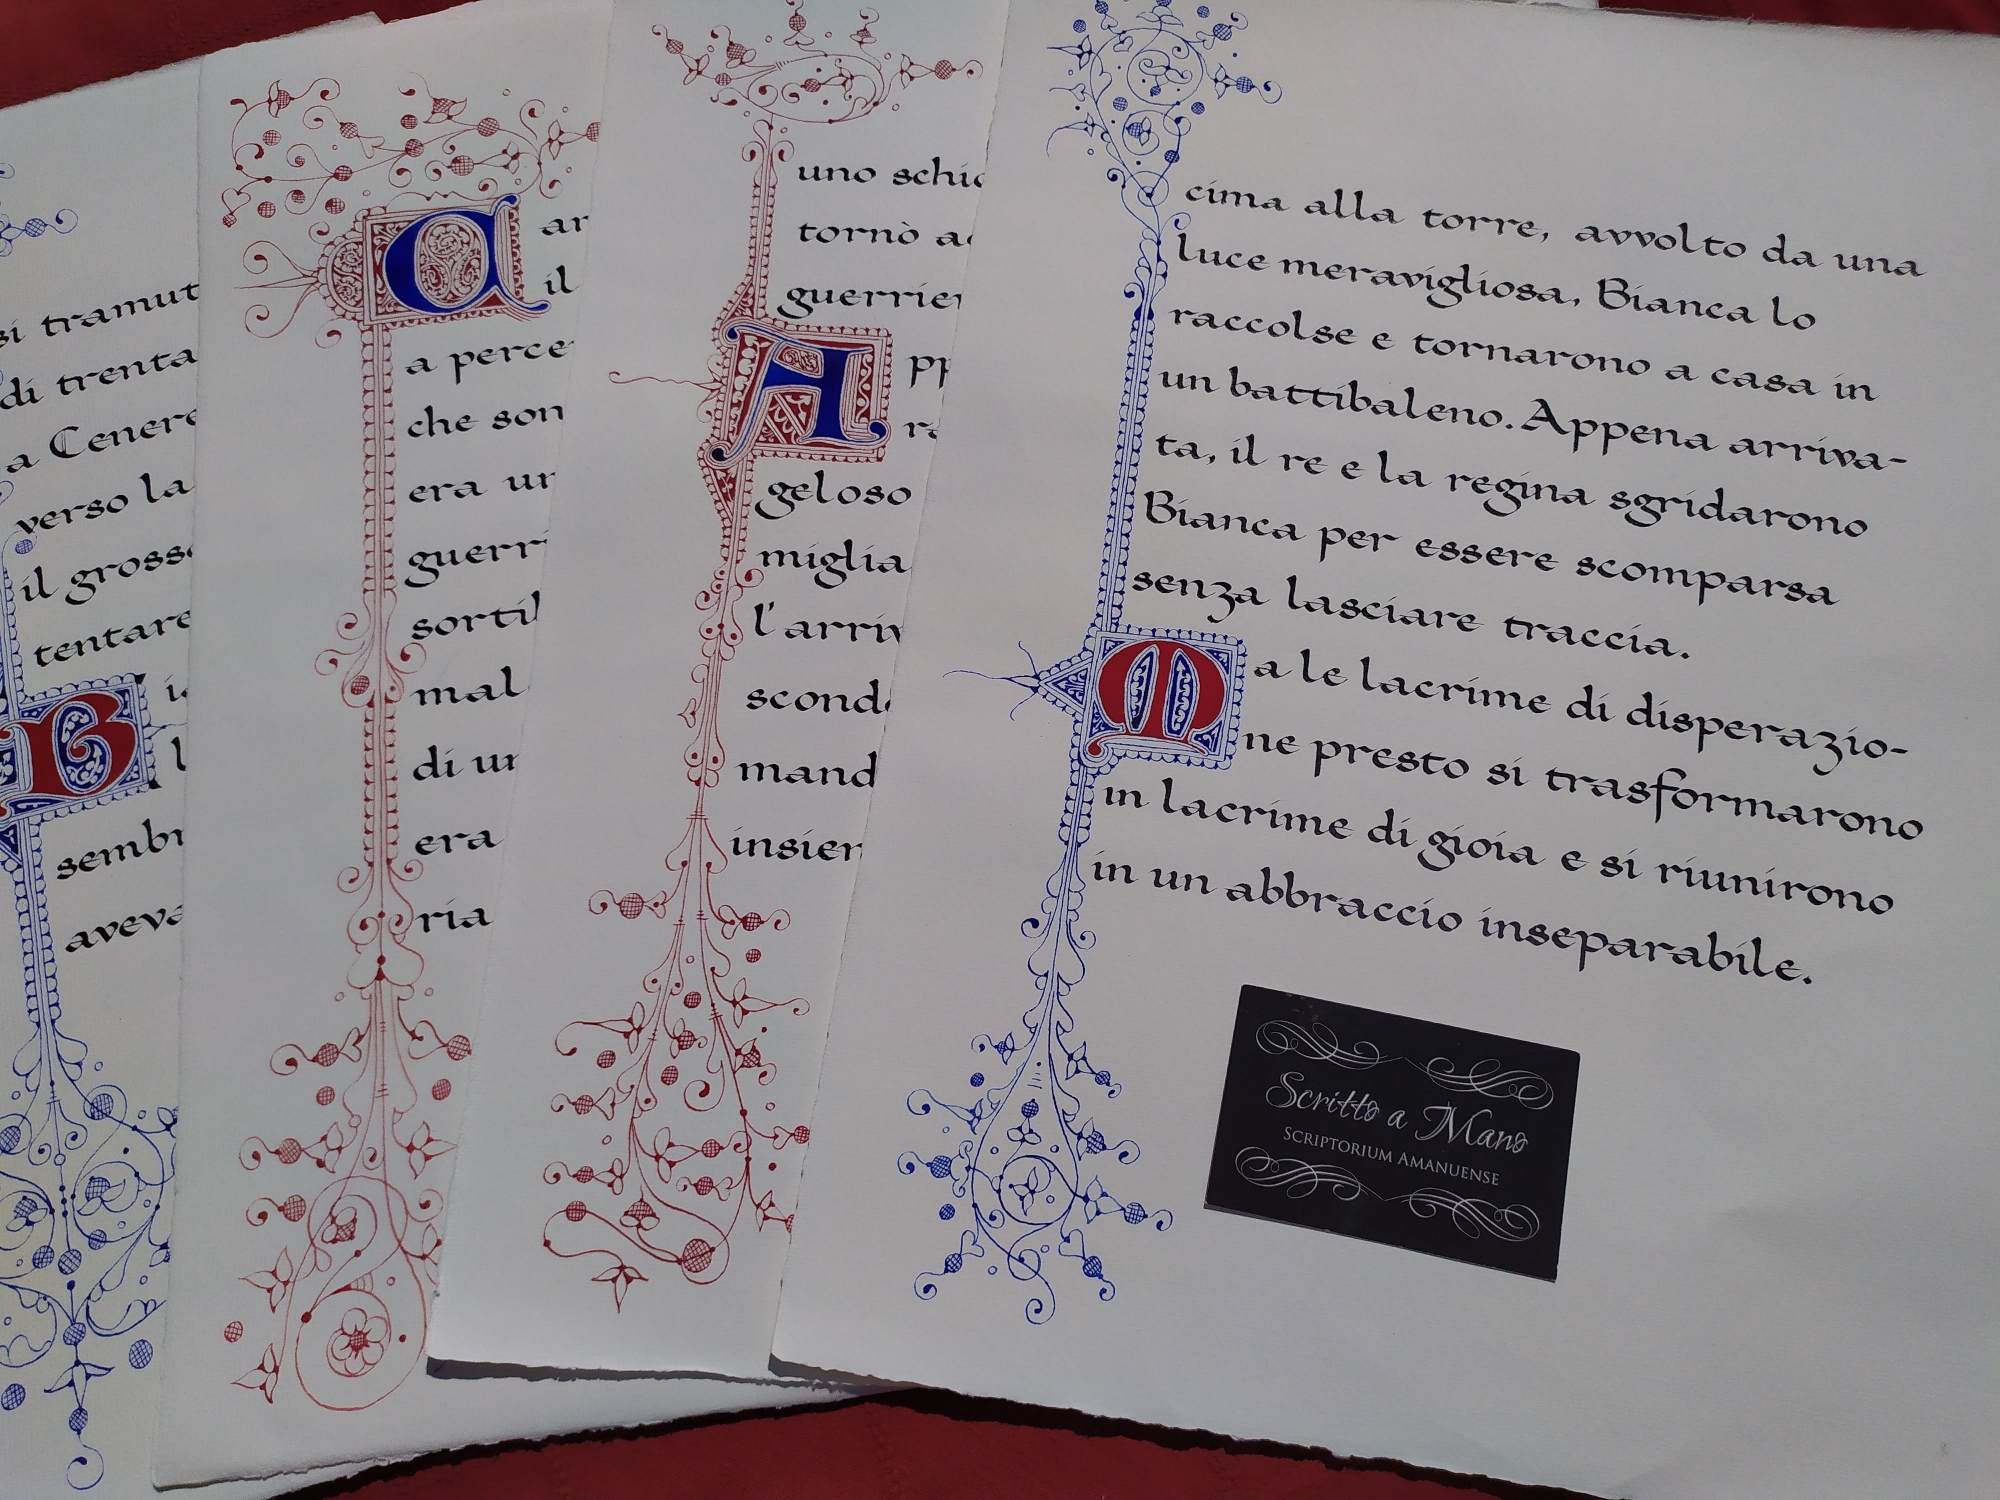 si tramut
di trenta
a Cenere
verso la
il gross
tentare
Bi
l
sembr
aveva
Car
il
a perce
che son
era un
guerri
sortil
mal
di un
era
ria
uno schi
tornò a
guerrier
App
ra
geloso
miglia
l'arriv
scond
mand
insiem
cima alla torre, avvolto da una
luce meravigliosa, Bianca lo
raccolse e tornarono a casa in
un battibaleno. Appena arriva-
ta, il re e la regina sgridarono
Bianca per essere scomparsa
senza lasciare traccia.
Ma le lacrime di disperazio-
ne presto si trasformarono
in lacrime di gioia e si riunirono
in un abbraccio inseparabile.
Scritto a Mano
SCRIPTORIUM AMANUENSE